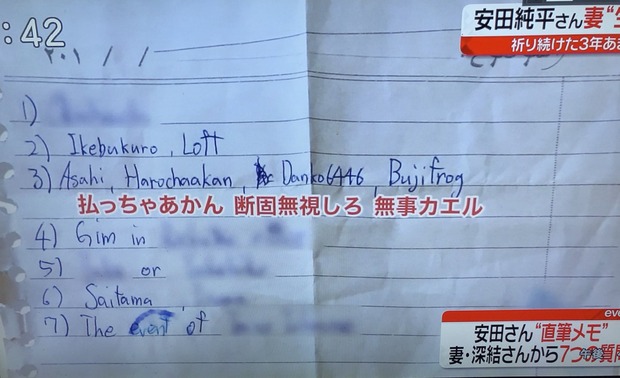 :42
安田純平さん妻“
祈り続けた3年あ
٢٠١ / /
1)
2) Ikebukuro, Loft
3) Asahi, Harochaakan, Danko6446, Bujifrog
払っちゃあかん 断固無視しろ 無事カエル
4) Gim in
5) or
6) Saitama
7) The event of
eve
安田さん“直筆メモ”
妻・深結さんから7つの質問